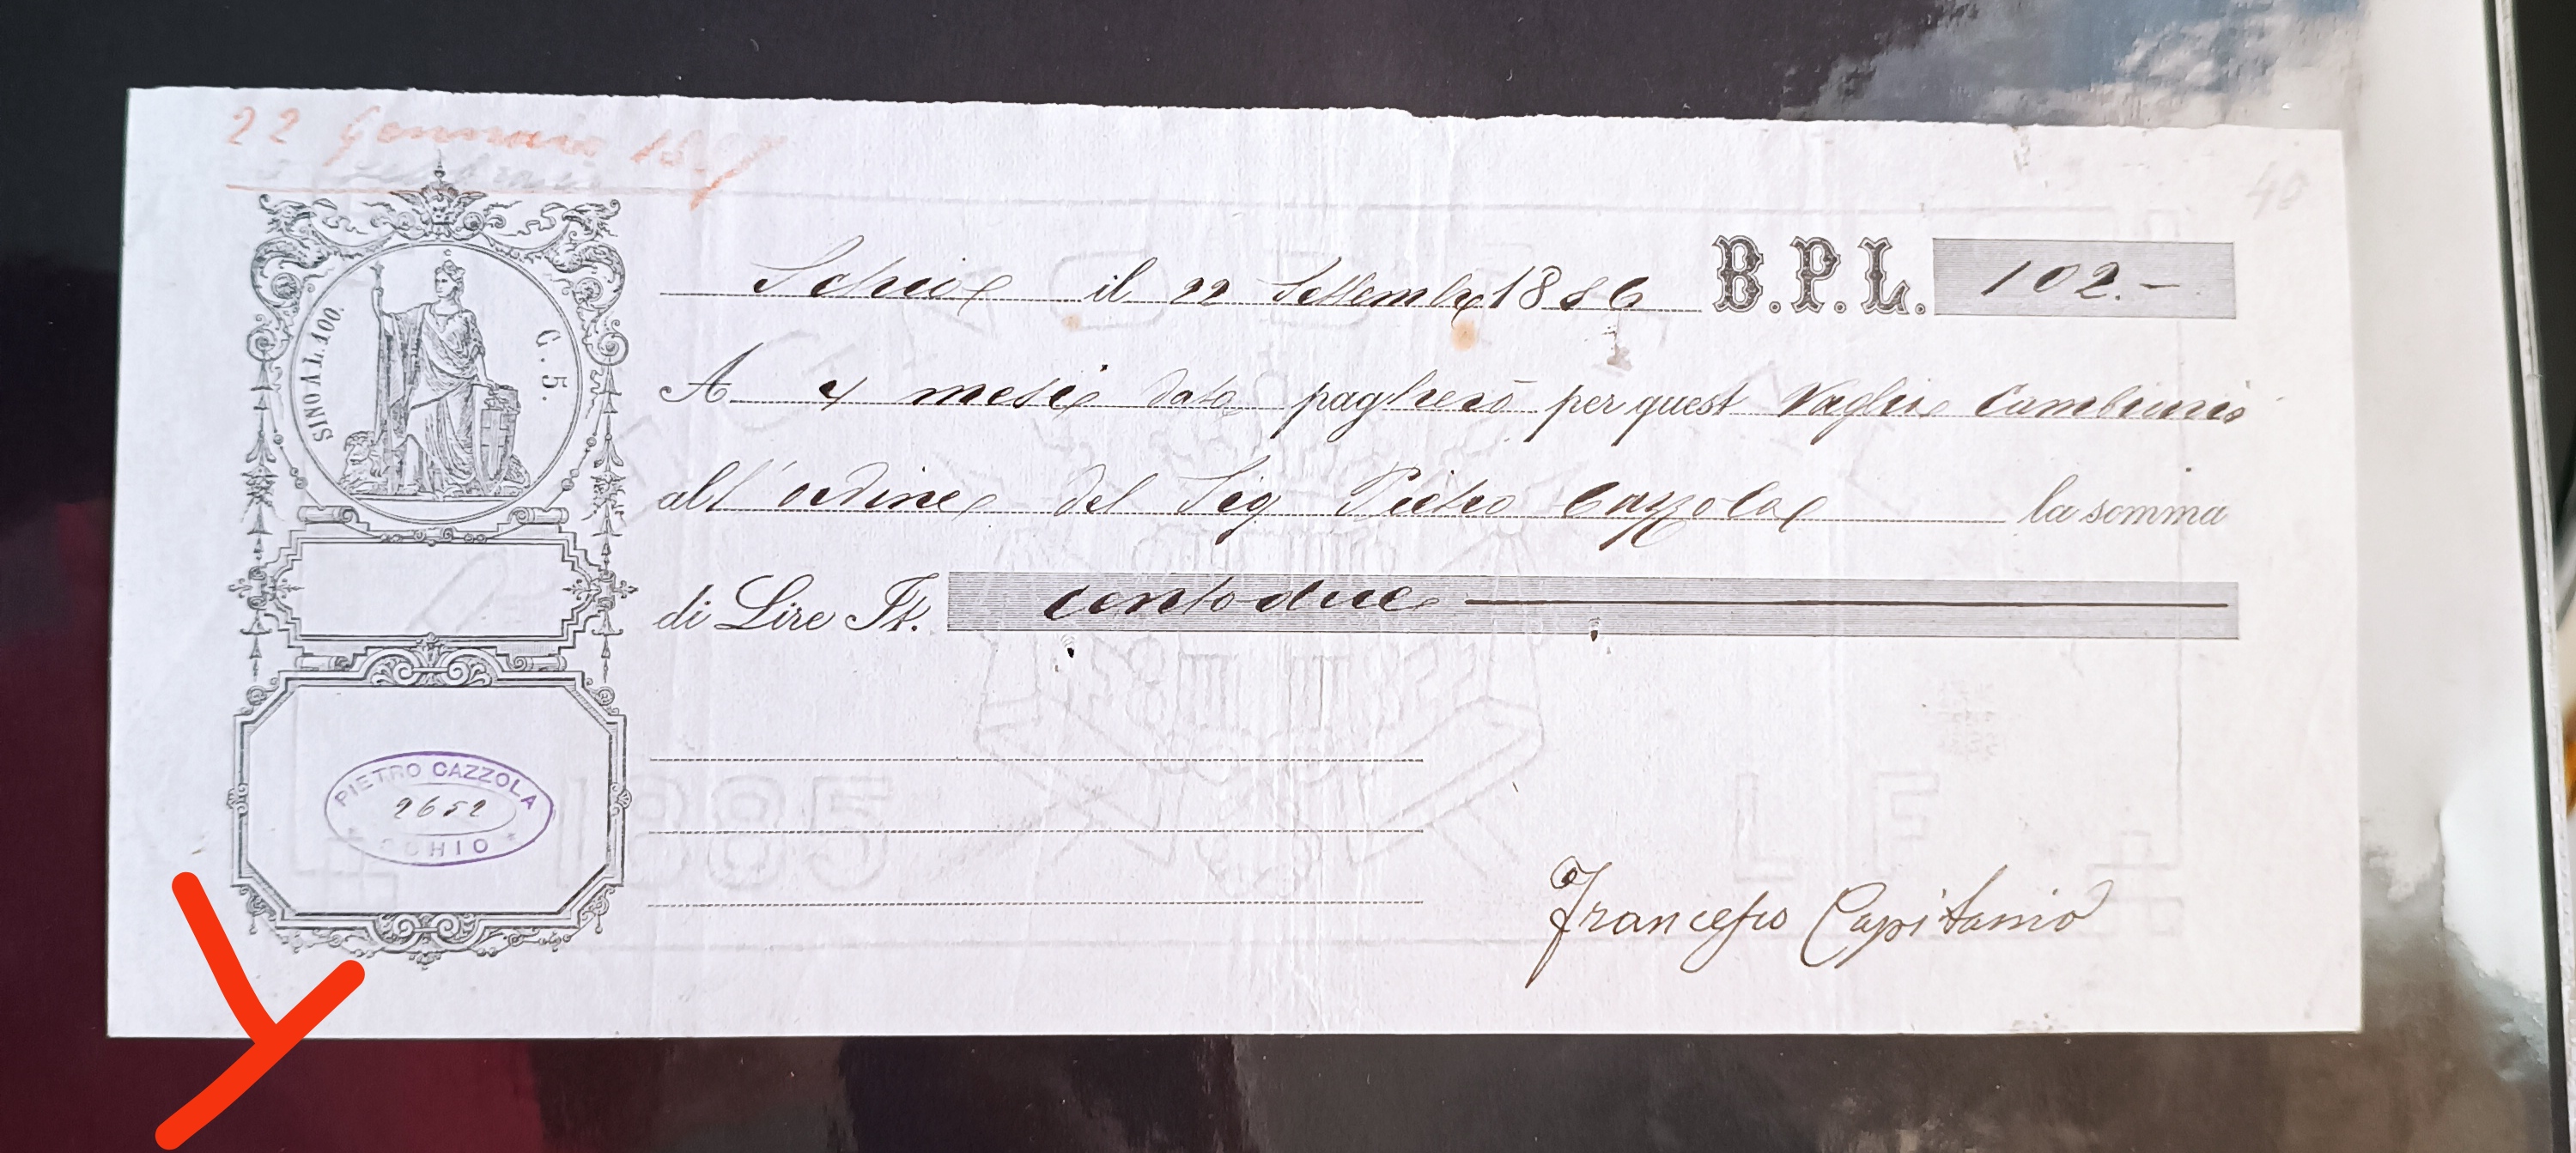 22 Gennaio 1887
40
SINO A L. 400.
C. 5.
Schio il 22 Settembre 1886 B.P.L. 102.-
A 4 mesi data pagherò per quest Vaglia Cambiario
all'ordine del Sig Pietro Cazzola la somma
di Lire It. centodue
PIETRO CAZZOLA
2652
SCHIO
1885
Francesco Capitanio